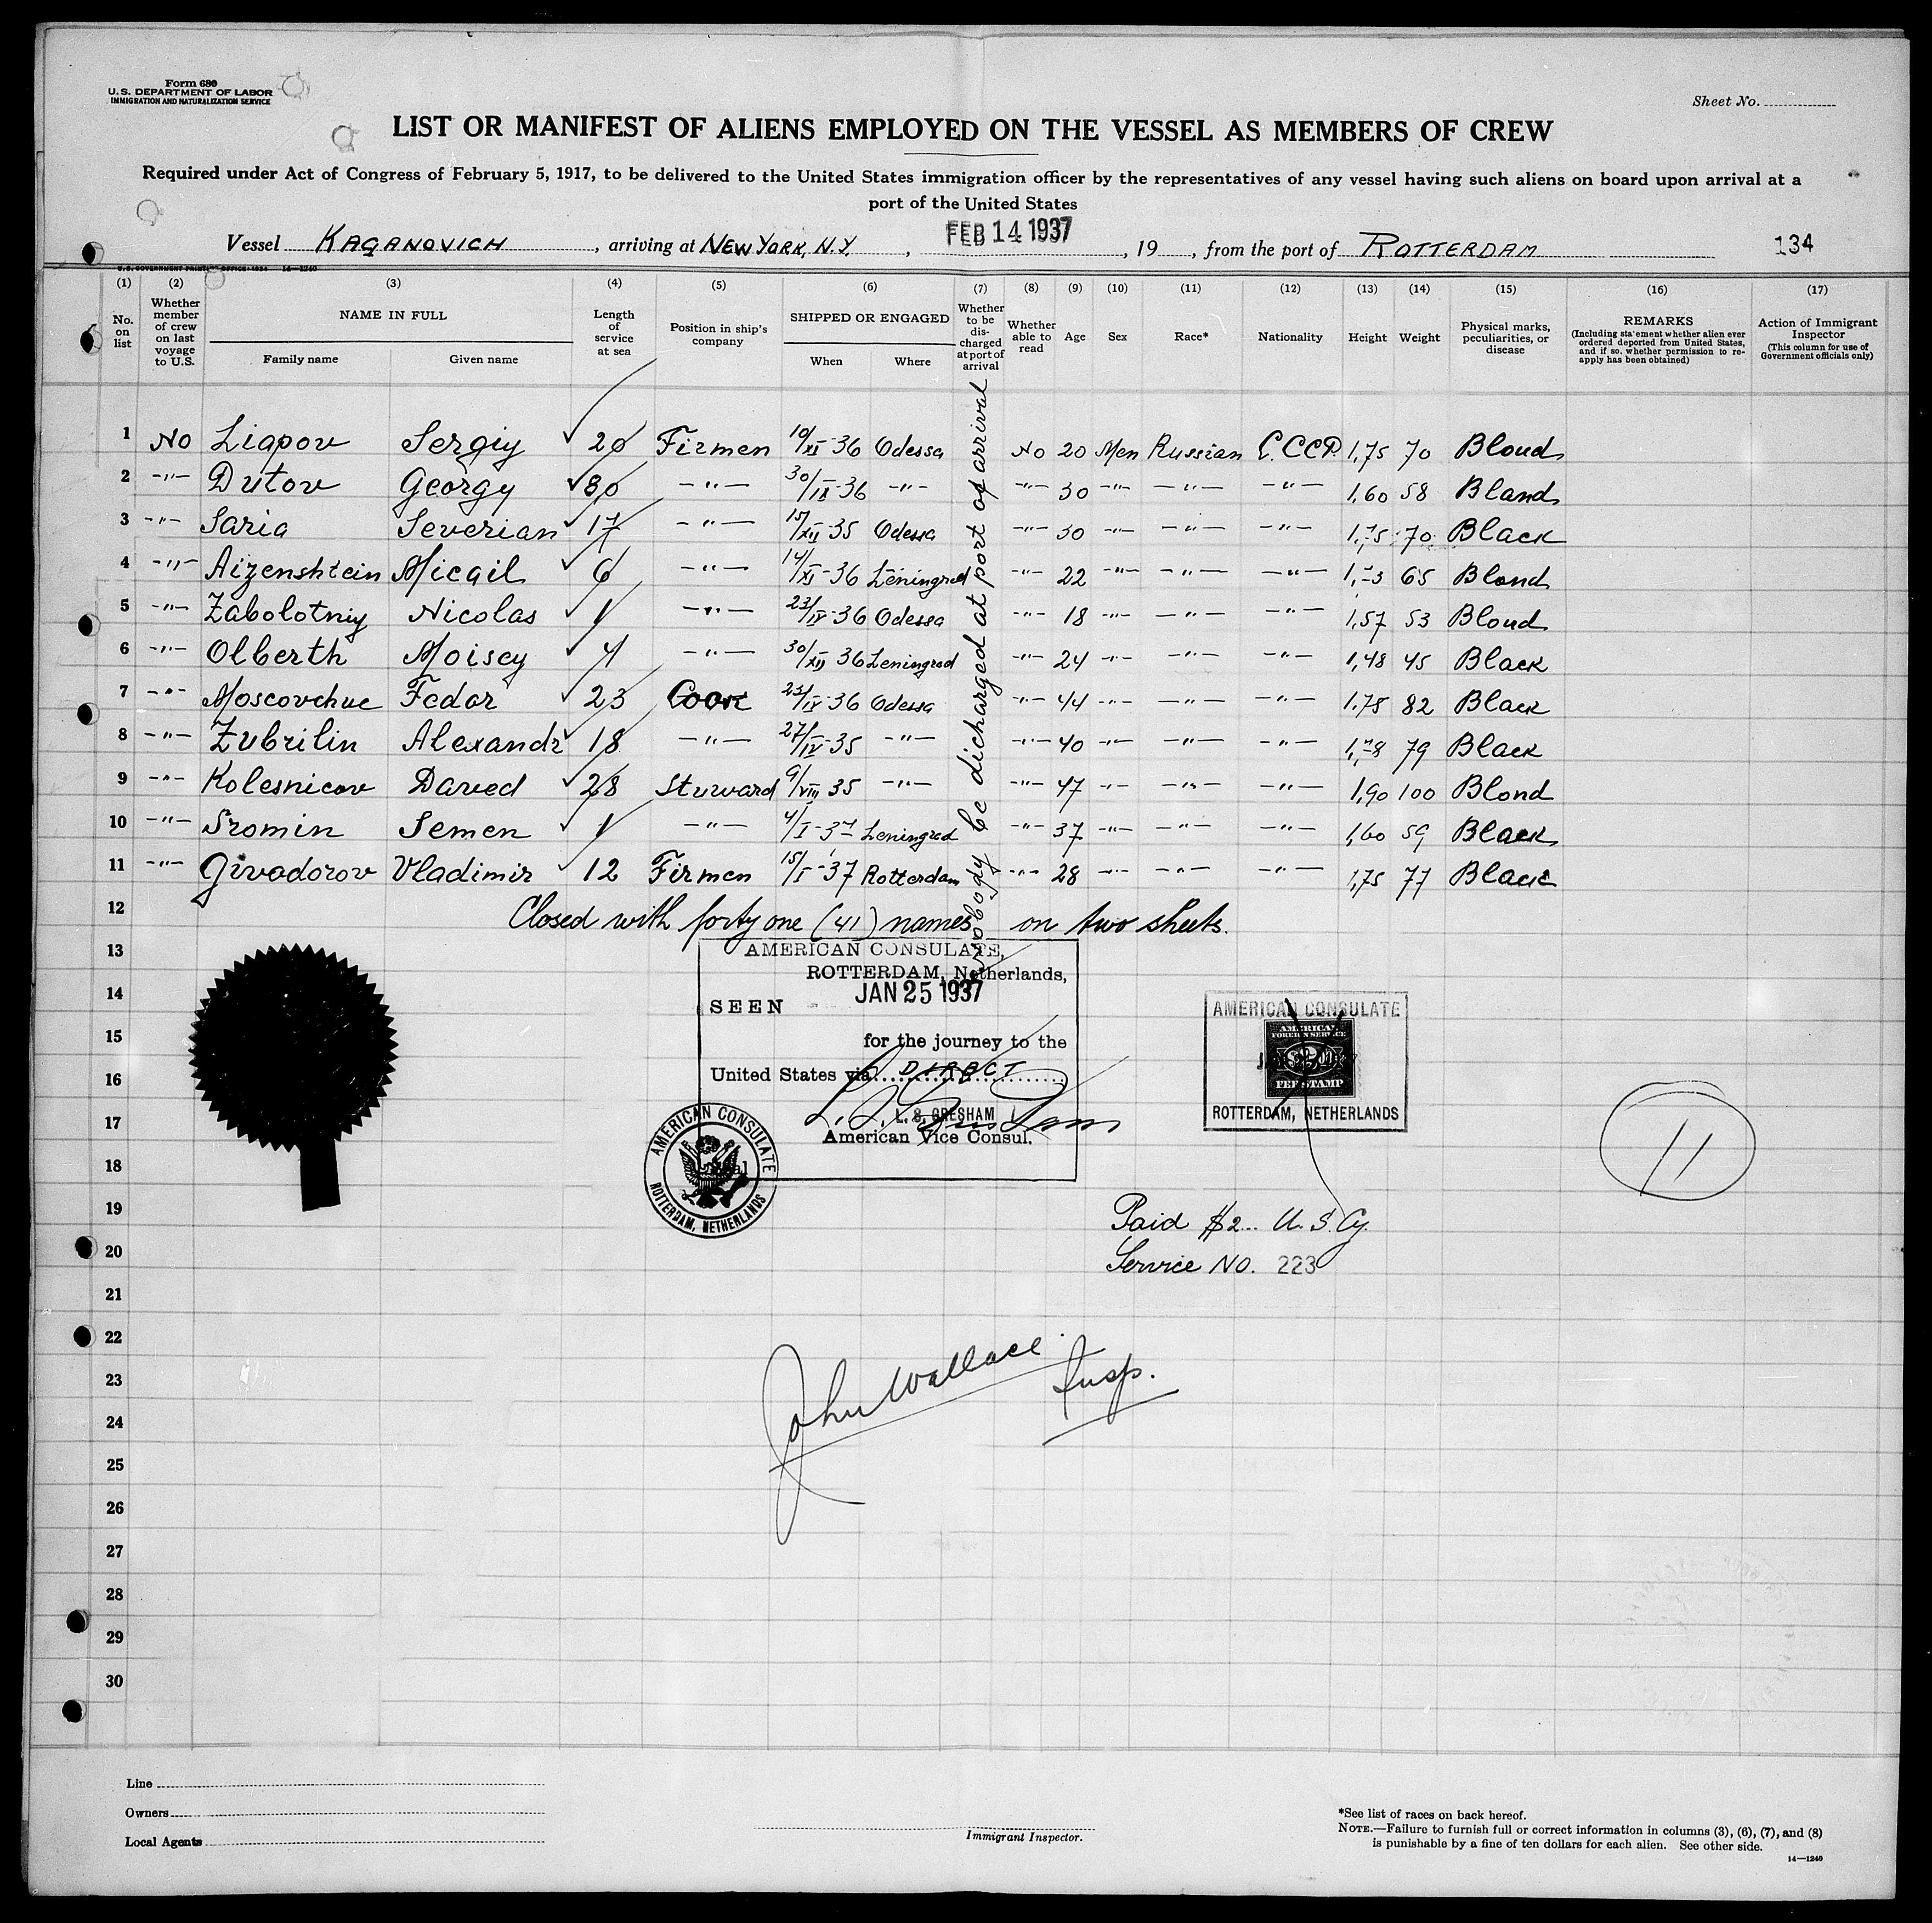 Form 680
U.S. DEPARTMENT OF LABOR
IMMIGRATION AND NATURALIZATION SERVICE
Sheet No.
LIST OR MANIFEST OF ALIENS EMPLOYED ON THE VESSEL AS MEMBERS OF CREW
Required under Act of Congress of February 5, 1917, to be delivered to the United States immigration officer by the representatives of any vessel having such aliens on board upon arrival at a
port of the United States
Vessel KAGANOVICH, arriving at NEW YORK, N.Y., FEB 14 1937, 19, from the port of ROTTERDAM 134
U.S. GOVERNMENT PRINTING OFFICE: 1934 14—1240
(1) No. on list
(2) Whether member of crew on last voyage to U.S.
(3) NAME IN FULL Family name Given name
(4) Length of service at sea
(5) Position in ship's company
(6) SHIPPED OR ENGAGED When Where
(7) Whether to be discharged at port of arrival
(8) Whether able to read
(9) Age
(10) Sex
(11) Race*
(12) Nationality
(13) Height
(14) Weight
(15) Physical marks, peculiarities, or disease
(16) REMARKS (Including statement whether alien ever ordered deported from United States, and if so, whether permission to reapply has been obtained)
(17) Action of Immigrant Inspector (This column for use of Government officials only)
Nobody be dicharged at port of arrival
1 No Liapov Sergiy 20 Firmen 10/XI-36 Odessa No 20 Men Russian C.CCP. 1,75 70 Bloud
2 -"- Dutov Georgy 30 -"- 30/IX-36 -"- -"- 30 -"- -"- -"- 1,60 58 Bland
3 -"- Saria Severian 17 -"- 15/XII-35 Odessa -"- 30 -"- -"- -"- 1,75 70 Black
4 -"- Aizenshtein Micail 6 -"- 14/XI-36 Leningrad -"- 22 -"- -"- -"- 65 Blond
5 -"- Zabolotniy Nicolas 1 -"- 23/IV-36 Odessa -"- 18 -"- -"- -"- 1,57 53 Bloud
6 -"- Olberth Moisey 4 -"- 30/XII 36 Leningrad -"- 24 -"- -"- -"- 1,48 45 Black
7 -"- Moscovchuc Fedor 23 Cook 23/IX-36 Odessa -"- 44 -"- -"- -"- 1.78 82 Black
8 -"- Zubrilin Alexandr 18 -"- 27/IV-35 -"- -"- 40 -"- -"- -"- 1,78 79 Black
9 -"- Kolesnicov Daved 28 Stuward 9/VIII 35 -"- -"- 47 -"- -"- -"- 1,90 100 Blond
10 -"- Sromin Semen 1 -"- 4/I-37 Leningrad -"- 37 -"- -"- -"- 1,60 59 Black
11 -"- Givodorov Vladimir 12 Firmen 15/I-37 Rotterdam -"- 28 -"- -"- -"- 1,75 77 Black
12 Closed with forty one (41) names on two sheets.
13
14
15
16
17
18
19
20
21
22
23
24
25
26
27
28
29
30
AMERICAN CONSULATE,
ROTTERDAM, Netherlands,
JAN 25 1937
SEEN
for the journey to the
United States via DIRECT
L. S. GRESHAM
American Vice Consul.
AMERICAN CONSULATE
ROTTERDAM, NETHERLANDS
AMERICAN CONSULATE
AMERICAN
FOREIGN SERVICE
FEE STAMP
ROTTERDAM, NETHERLANDS
11
Paid $2.. U.S. Cy.
Service No. 223
John Wallace
Insp.
Line
Owners
Local Agents
Immigrant Inspector.
*See list of races on back hereof.
NOTE.—Failure to furnish full or correct information in columns (3), (6), (7), and (8)
is punishable by a fine of ten dollars for each alien. See other side.
14—1240